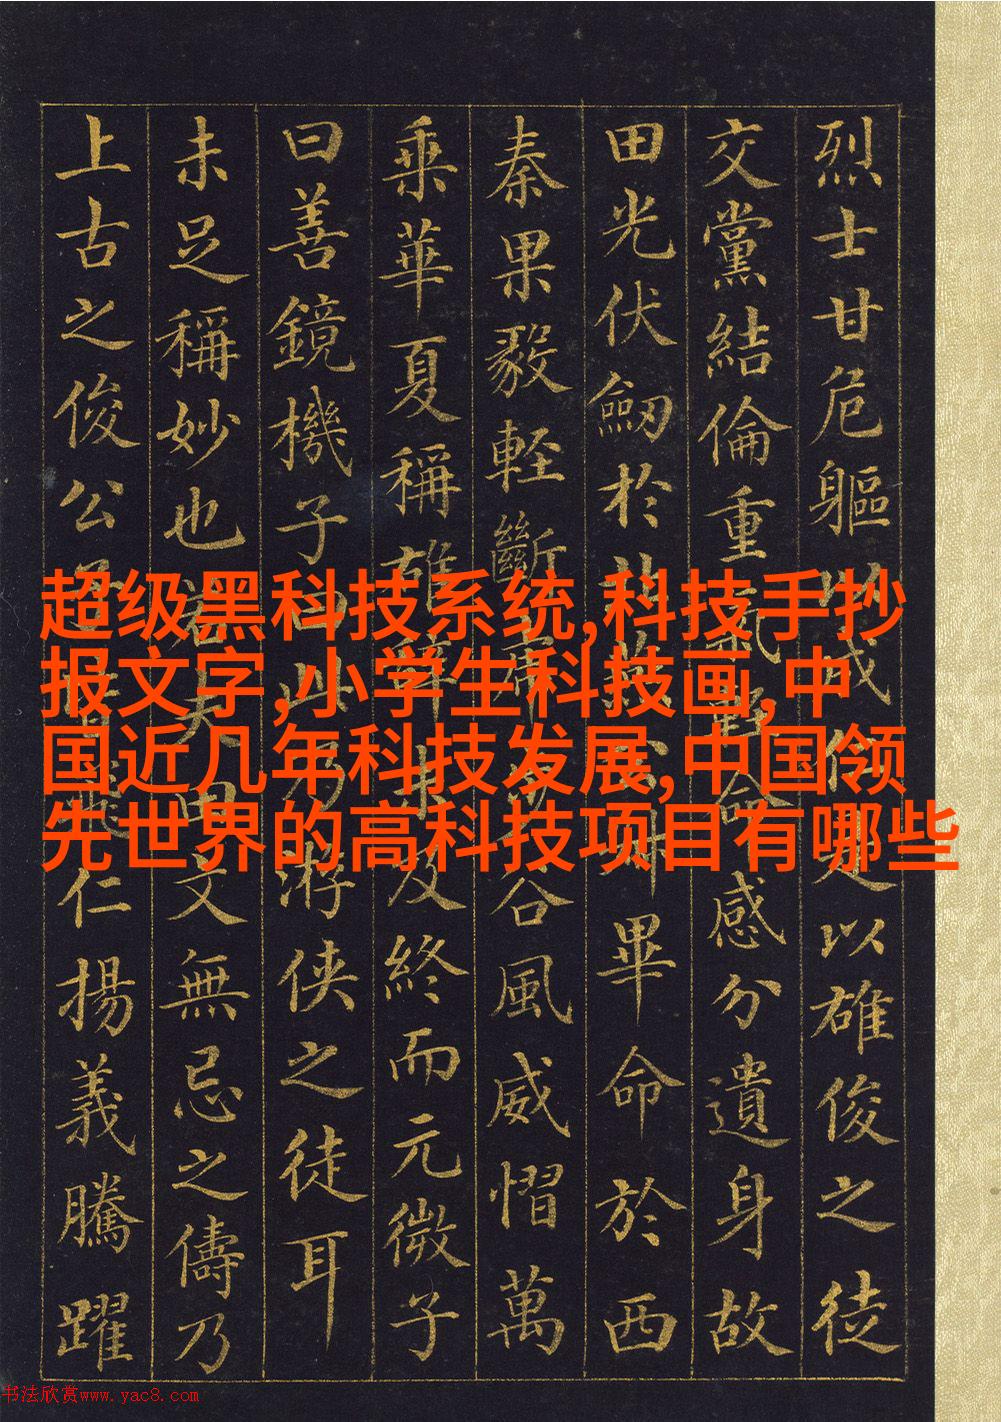 烈士甘危軀以成仁是以雄俊之徒
交黨結倫重氣輕命感分遺身故
田光伏劒於北燕公叔畢命於西
秦果毅輕斷虎步谷風威慴萬
乘華夏稱雄辭未及終而元微子
曰善鏡機子曰此乃游俠之徒耳
未足稱妙也若夫田文無忌之儔乃
上古之俊公子也皆飛仁揚義騰躍
超级黑科技系统,科技手抄
报文字,小学生科技画,中
国近几年科技发展,中国领
先世界的高科技项目有哪些
书法欣赏www.yac8.com